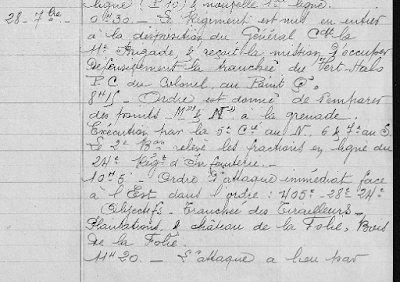 ligne (P 10) & nouvelle 1ère ligne.
28-7bre.- 0h30 - Le Régiment est mis en entier
à la disposition du Général Ct la
11e Brigade, & reçoit la mission d'occuper
défensivement la tranchée du Vert Halo
P.C du Colonel au Point G.
8h15 - Ordre est donné de s'emparer
des points M & N à la grenade.
Exécution par la 5e Cie au N, 6 & 7e au S.
Le 2e Bon relève les fractions en ligne du
24e Régt d'Infanterie.-
10h5 - Ordre d'attaque immédiat face
à l'Est dans l'ordre : 405e - 28e 24e
Objectifs - Tranchée des Tirailleurs -
Plantations & château de la Folie, Bois
de la Folie.
11h20. - L'attaque a lieu par